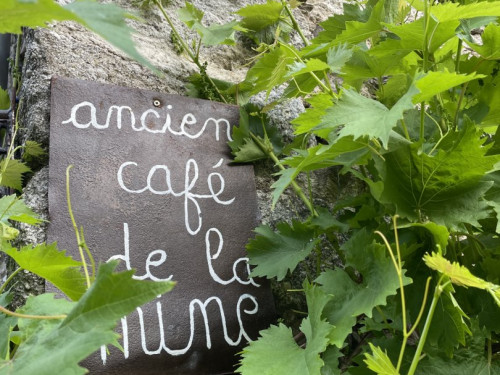 ancien
café
de la
mine